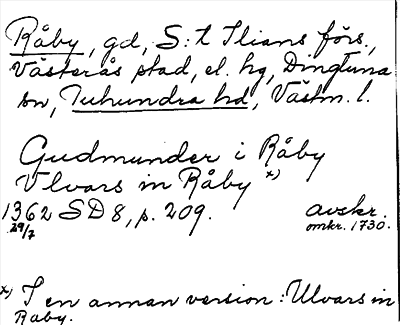 Råby, gd, S:t Ilians förs.,
Västerås stad, el. hg, Dingtuna
sn, Tuhundra hd, Västm. l.
Gudmunder i Råby
Vlvars in Råby x)
1362 SD 8, p. 209. avskr.
29/7 omkr. 1730.
x) I en annan version: Ulvars in
Raby.